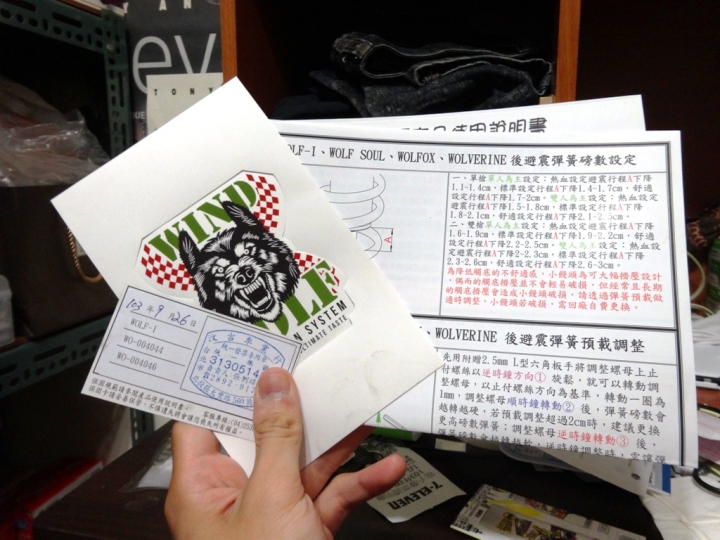 ev
TONY
使用說明書
WOLF-I、WOLF SOUL、WOLFOX、WOLVERINE 後避震彈簧磅數設定
一、單槍單人為主設定：熱血設定避震行程A下降
1.1-1.4cm，標準設定行程A下降1.4-1.7cm，舒適
設定行程A下降1.7-2cm。雙人為主設定：熱血設
定避震行程A下降1.5-1.8cm，標準設定行程A下降
1.8-2.1cm，舒適設定行程A下降2.1-2.5cm。
二、雙槍單人為主設定：熱血設定避震行程A下降
1.6-1.9cm，標準設定行程A下降1.9-2.2cm，舒適
設定行程A下降2.2-2.5cm。雙人為主設定：熱血設
定避震行程A下降2-2.3cm，標準設定行程A下降
2.3-2.6cm，舒適設定行程A下降2.6-3cm。
為降低觸底的不舒適感，小饅頭為可大幅擠壓設計，
偶而的觸底擠壓並不會輕易破損，但經常且長期
的觸底擠壓會造成小饅頭破損，請透過彈簧預載做
適時調整，小饅頭若破損，需回廠自費更換。
A
WOLVERINE 後避震彈簧預載調整
先用附贈2.5mm L型六角板手將調整螺母上止
付螺絲以逆時針方向① 旋鬆，就可以轉動調
整螺母，以止付螺絲方向為基準，轉動一圈為
1mm，調整螺母順時鐘轉動② 後，彈簧磅數會
越轉越硬，若預載調整超過2cm時，建議更換
更高磅數彈簧；調整螺母逆時鐘轉動③ 後，
WIND
WOLF
N SYSTEM
ULTIMATE TASTE
103年9月26日
WOLF-I
WO-004044
WO-004046
3130514
7-ELEVEN